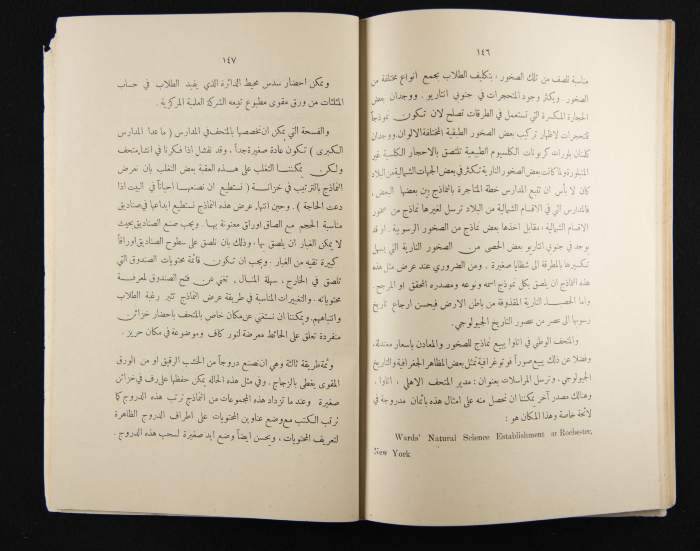 ١٤٦
مناسبة للصف من تلك الصخور ، بتكليف الطلاب بجمع أنواع مختلفة من
الصخور . ويكثر وجود المتحجرات في جنوبي انتاريو . ووجدان بعض
الحجارة المكسرة التي تستعمل في الطرقات تصلح لان تكون نموذجاً
للمتحجرات لاظهار تركيب بعض الصخور الطبقية المختلفة الالوان . ووجدان
كذلك بلورات كربونات الكلسيوم الطبيعية تلتصق بالاحجار الكلسية غير
المتبلورة ولما كانت بعض الصخور النارية تكثر في بعض الجهات الشمالية من البلاد
كان لا بأس ان تتبع المدارس خطة المتاجرة بالنماذج بين بعضها البعض ،
فالمدارس التي في الاقسام الشمالية من البلاد ترسل لغيرها نماذج من صخور
الاقسام الشمالية ، مقابل اخذها بعض نماذج من الصخور الرسوبية . او قد
يوجد في جنوبي انتاريو بعض الحصى من الصخور النارية التي يسهل
تكسيرها بالمطرقة الى شظايا صغيرة . ومن الضروري عند عرض مثل هذه
هذه النماذج ان يلصق بكل نموذج اسمه ونوعه ومصدره المحقق او المرجح .
واما الحصـاء النارية المقذوفة من باطن الارض فيحسن ارجاع تاريخ
رسوبها الى عصر من عصور التاريخ الجيولوجي .
والمتحف الوطني في اتاوا يبيع نماذج للصخور والمعادن باسعار معتدلة،
وفضلا عن ذلك يبيع صوراً فوتوغرافية تمثل بعض المظاهر الجغرافية والتاريخ
الجيولوجي . وترسل المراسلات بعنوان : مدير المتحف الاهلي ، اتاوا .
وهنالك مصدر آخر يمكننا ان نحصل منه على امثال هذه باثمان مدروجة في
لائحة خاصة وهذا المكان هو :
Wards' Natural Science Establishment at Rochester,
New York
١٤٧
ويمكن احضار سدس محيط الدائرة الذي يفيد الطلاب في حساب
المثلثات من ورق مقوى مطبوع تبيعه الشركة العلمية المركزية .
والفسحة التي يمكن ان نخصصها بالمتحف في المدارس ( ما عدا المدارس
الكبرى ) تكون عادة صغيرة جداً ، وقد نفشل اذا فكرنا في انشاء متحف
ولكن يمكننا التغلب على هذه العقبة بعض التغلب بان نعرض
النماذج بالترتيب في خزانة ( نستطيع ان نصنعها احياناً في البيت اذا
دعت الحاجة ) . وحين انتهاء عرض هذه النماذج نستطيع ايداعها في صناديق
مناسبة الحجم مع الصاق اوراق معنونة بها . ويجب صنع الصناديق بحيث
لا يمكن الغبار ان يلصق بها ، وذلك بان نلصق على سطوح الصناديق اوراقاً
كبيرة تقيه من الغبار . ويجب ان تكون قائمة محتويات الصندوق التي
تلصق في الخارج ، سهلة المنال ، تغني عن فتح الصندوق لمعرفة
محتوياته . والتغييرات المناسبة في طريقة عرض النماذج تثير رغبة الطلاب
وانتباههم . ويمكننا ان نستغني عن مكان خاص بالمتحف باحضار خزائن
منفردة تعلق على الحائط معرضة لنور كاف وموضوعة في مكان حريز .
وثمة طريقة ثالثة وهي ان نصنع دروجاً من الخشب الرقيق او من الورق
المقوى يغطى بالزجاج . وفي مثل هذه الحاله يمكن حفظها على رف في خزائن
صغيرة . وعند ما تزداد هذه المجموعات من النماذج ترتب هذه الدروج كما
ترتب الكتب مع وضع عناوين المحتويات على اطراف الدروج الظاهرة
لتعريف المحتويات ، ويحسن ايضاً وضع ايد صغيرة لسحب هذه الدروج .